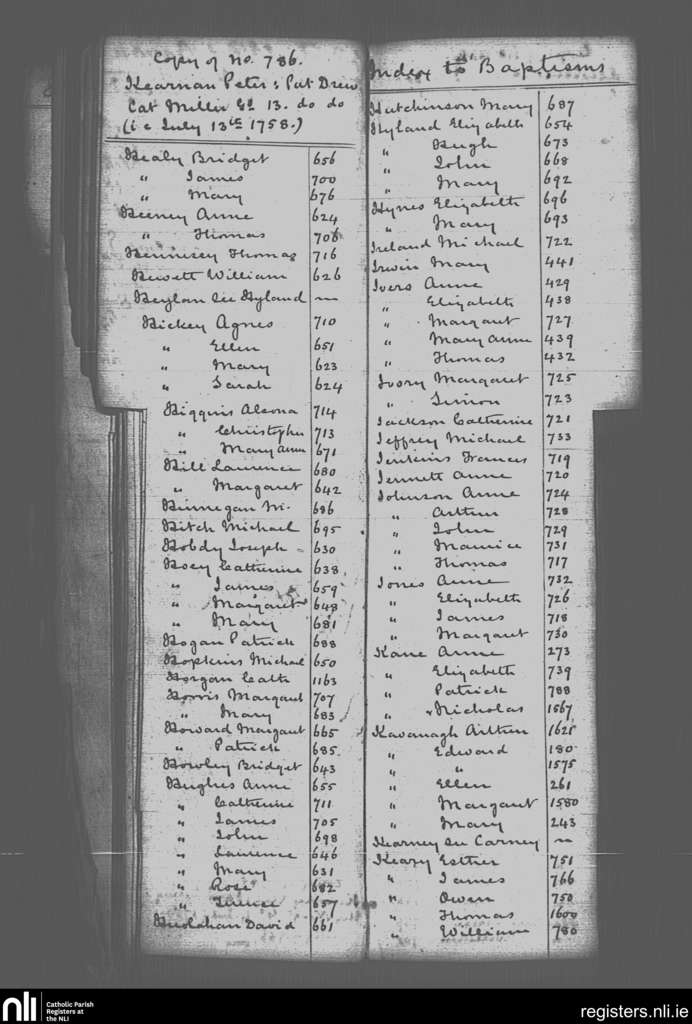 Copy of No. 786.
Kearnan Peter: Pat Drew
Cat Miller Gs 13. do do
(i e July 13th 1758.)
Healy Bridget 656
" James 700
" Mary 676
Heeney Anne 624
" Thomas 706
Hennesey Thomas 716
Hewett William 626
Heylan see Hyland —
Hickey Agnes 710
" Ellen 651
" Mary 623
" Sarah 624
Higgins Alexona 714
" Christopher 713
" Mary anne 671
Hill Laurence 680
" Margaret 642
Hinnegan Mr. 686
Hitch Michael 695
Hobdy Joseph 630
Hoey Catherine 638
" James 659
" Margaret 648
" Mary 681
Hogan Patrick 688
Hopkins Michael 650
Horgan Cath 1163
Horris Margaret 707
" Mary 683
Howard Margaret 665
" Patrick 685
Howley Bridget 643
Hughes Anne 655
" Catherine 711
" James 705
" John 698
" Laurence 646
" Mary 631
" Rose 682
" Terence 657
Huolahan David 661
Index to Baptisms
Hutchinson Mary 687
Hyland Elizabeth 654
" Hugh 673
" John 668
" Mary 692
Hynes Elizabeth 696
" Mary 693
Ireland Michael 722
Irwin Mary 441
Ivers Anne 429
" Elizabeth 438
" Margaret 727
" Mary Anne 439
" Thomas 432
Ivory Margaret 725
" Simon 723
Jackson Catherine 721
Jeffrey Michael 733
Jenkins Frances 719
Jennett Anne 720
Johnson Anne 724
" Arthur 728
" John 729
" Maurice 731
" Thomas 717
Jones Anne 732
" Elizabeth 726
" James 718
" Margaret 730
Kane Anne 273
" Elizabeth 739
" Patrick 788
" Nicholas 1567
Kavanagh Arthur 1625
" Edward 180
" " 1575
" Ellen 261
" Margaret 1580
" Mary 243
Kearney see Carney —
Keary Esther 751
" James 766
" Owen 750
" Thomas 1600
" William 780
nli Catholic Parish
Registers at
the NLI
registers.nli.ie